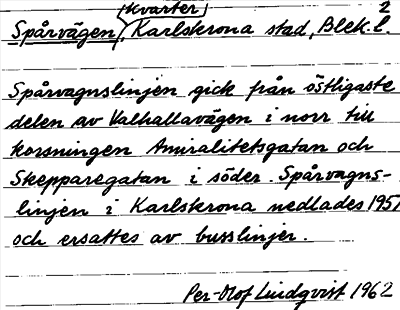 (kvarter) 2
Spårvägen, Karlskrona stad, Blek. l.
Spårvagnslinjen gick från östligaste
delen av Valhallavägen i norr till
korsningen Amiralitetsgatan och
Skepparegatan i söder. Spårvagns-
linjen i Karlskrona nedlades 1951
och ersattes av busslinjer.
Per-Olof Lindqvist 1962